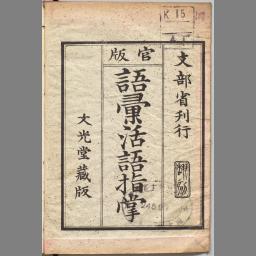 文部省刊行
官版
語彙活語指掌
大光堂藏版
K 15